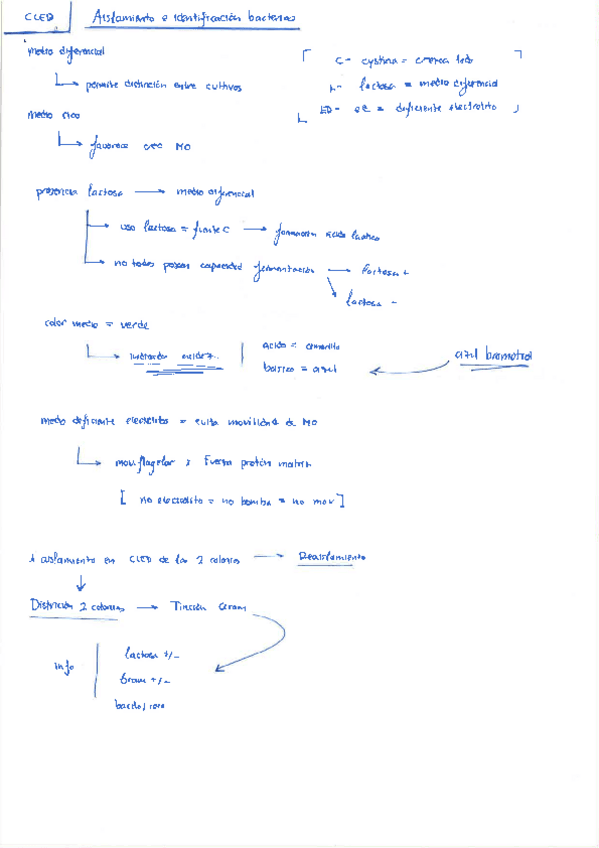 CLED
Aislamiento e identificación bacterias
medio diferencial
permite distinción entre cultivos
medio rico
favorece crec MO
C - cystina =
L - lactosa = medio diferencial
ED - = deficiente electrolito
presencia lactosa → medio diferencial
uso lactosa = fuente C → formación ácido láctico
no todos poseen capacidad fermentación → lactosa +
lactosa -
color medio = verde
indicador acidez
ácido = amarillo
básico = azul
azul bromotiol
medio deficiente electrolitos = evita movilidad de MO
mov. flagelar > Fuerza protón motriz
[ no electrolito = no bomba = no mov ]
aislamiento en CLED de las 2 colonias → Reaislamiento
Distinción 2 colonias → Tinción Gram
info
lactosa +/-
Gram +/-
bacilo / coco